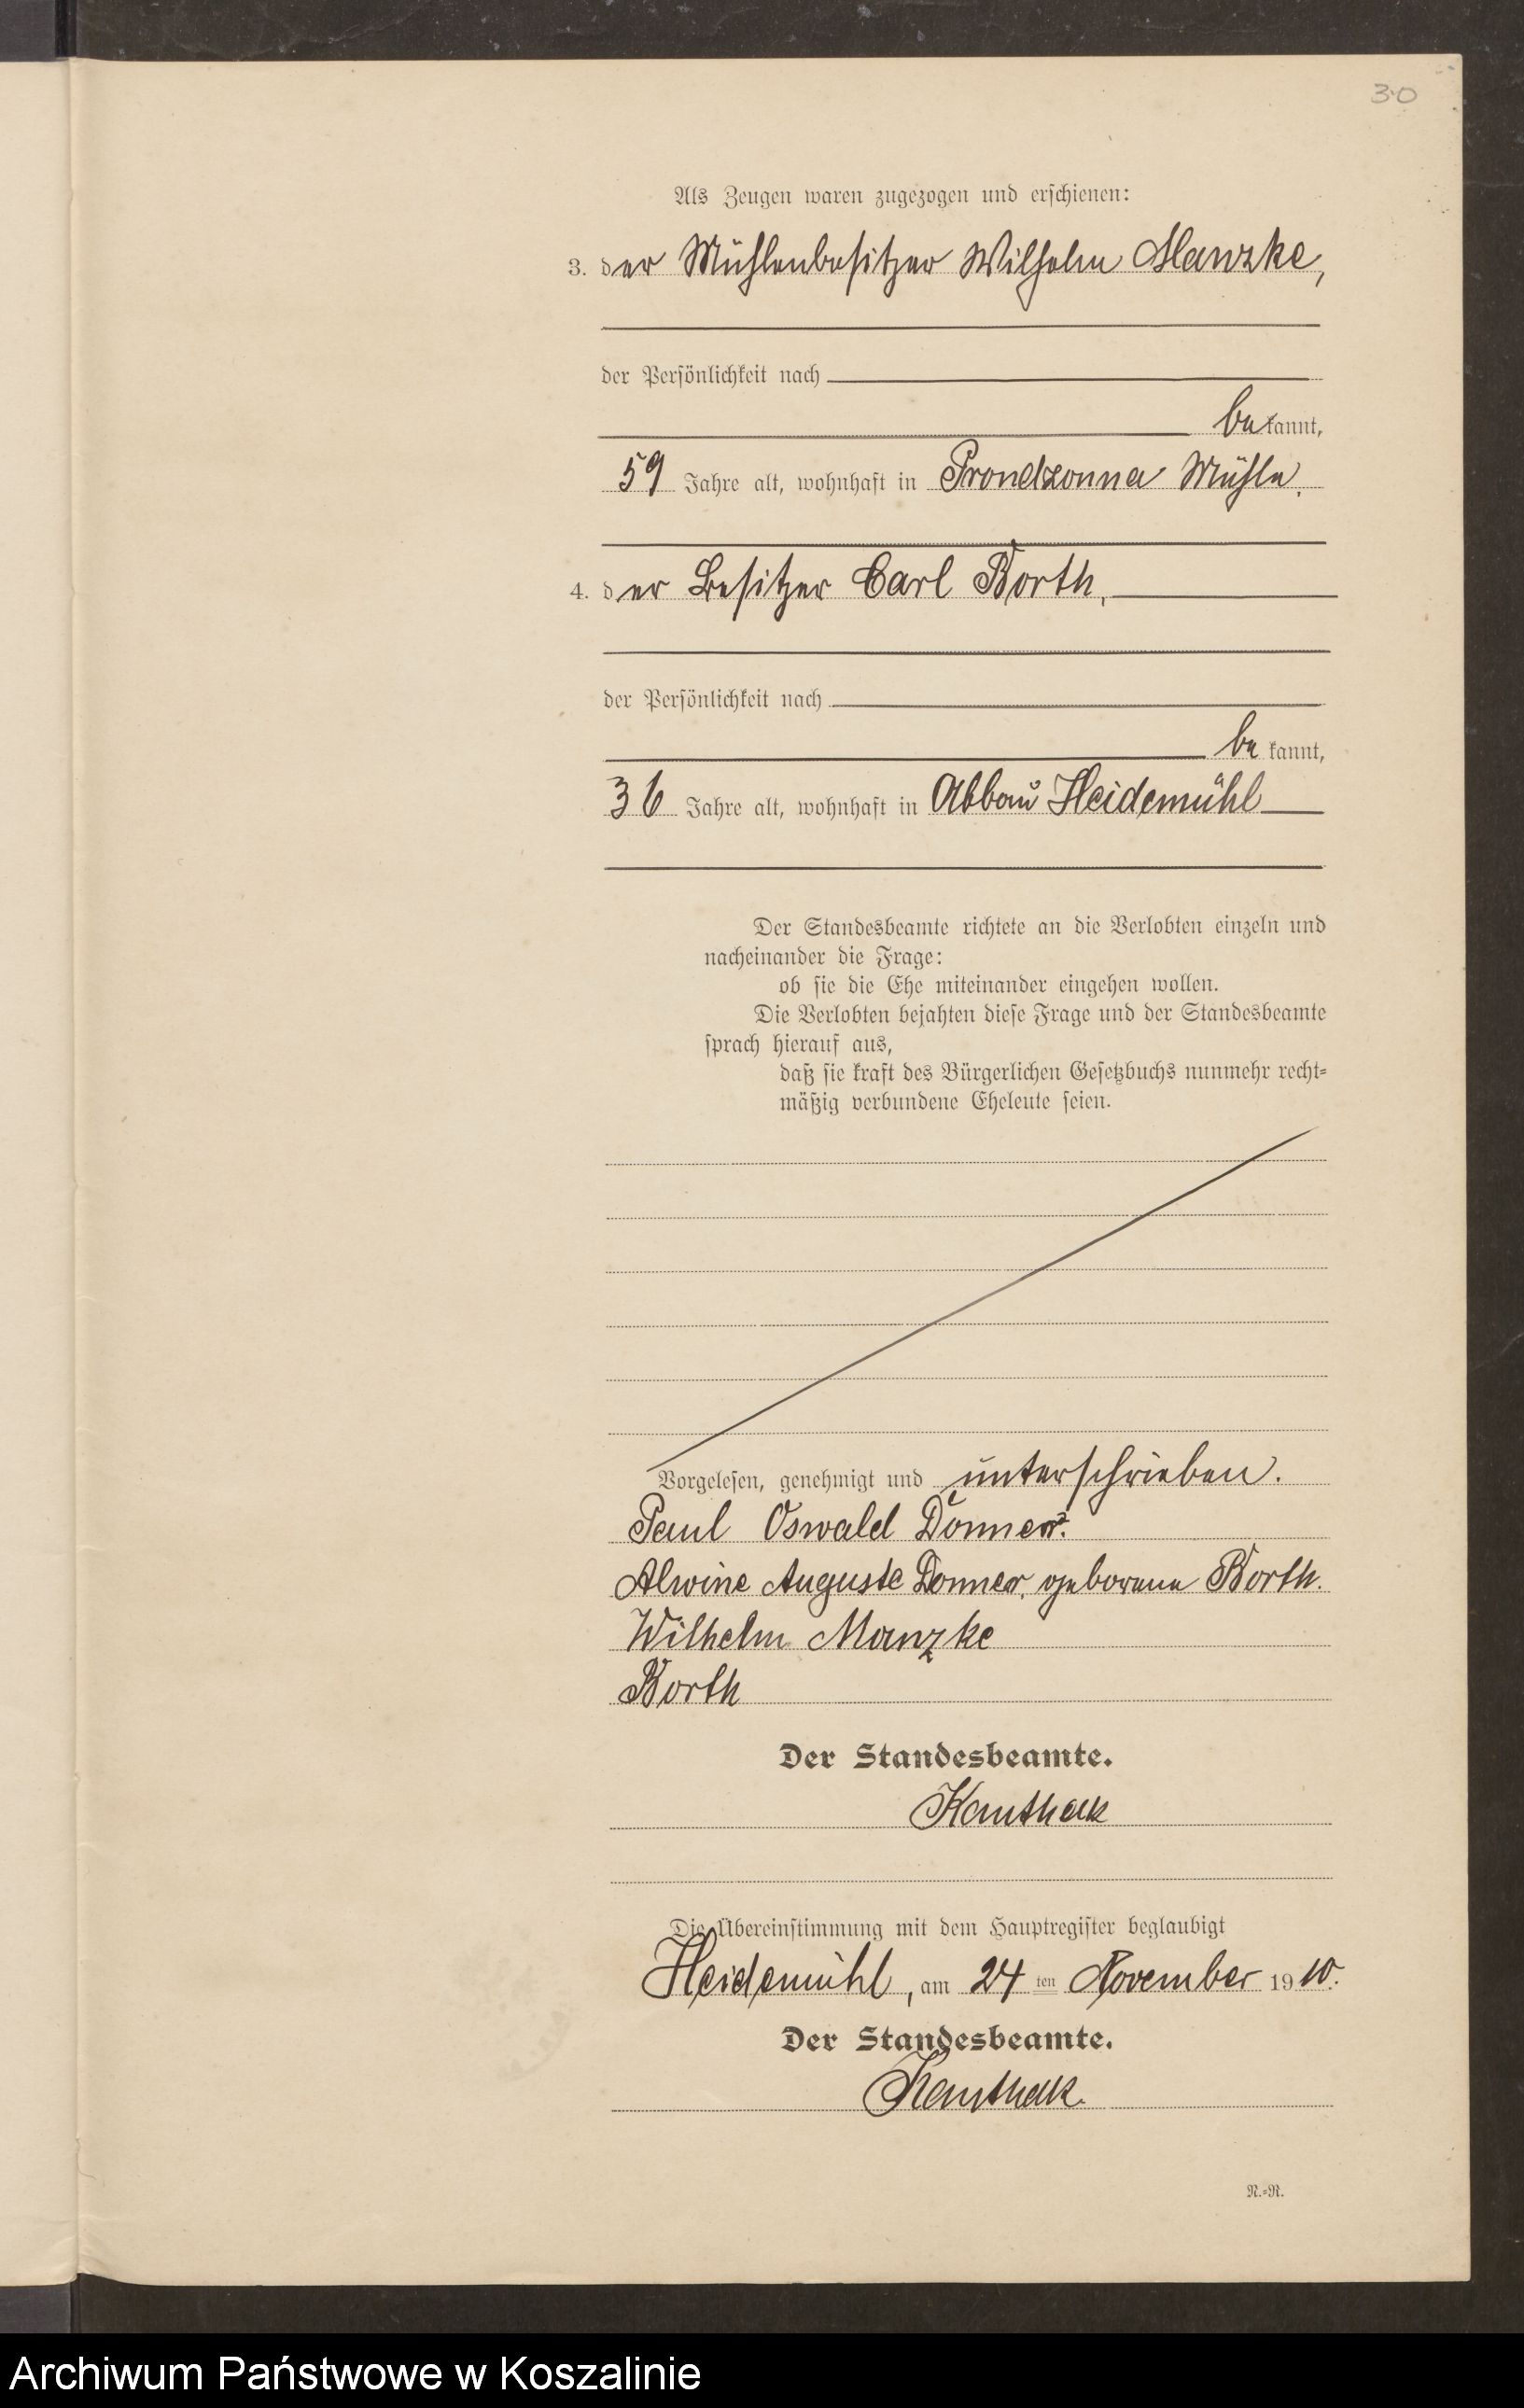 30
Als Zeugen waren zugezogen und erschienen:
3. der Mühlenbesitzer Wilhelm Manzke,
der Persönlichkeit nach
bekannt,
59 Jahre alt, wohnhaft in Prondzonna Mühle.
4. der Besitzer Carl Borth,
der Persönlichkeit nach
bekannt,
36 Jahre alt, wohnhaft in Abbau Heidemühl
Der Standesbeamte richtete an die Verlobten einzeln und
nacheinander die Frage:
ob sie die Ehe miteinander eingehen wollen.
Die Verlobten bejahten diese Frage und der Standesbeamte
sprach hierauf aus,
daß sie kraft des Bürgerlichen Gesetzbuchs nunmehr recht-
mäßig verbundene Eheleute seien.
Vorgelesen, genehmigt und unterschrieben.
Paul Oswald Donner.
Alwine Auguste Donner, geborene Borth.
Wilhelm Manzke
Borth
Der Standesbeamte.
Kauthak
Die Übereinstimmung mit dem Hauptregister beglaubigt
Heidemühl, am 24 ten November 1910.
Der Standesbeamte.
Kauthak.
N.-R.
Archiwum Państwowe w Koszalinie